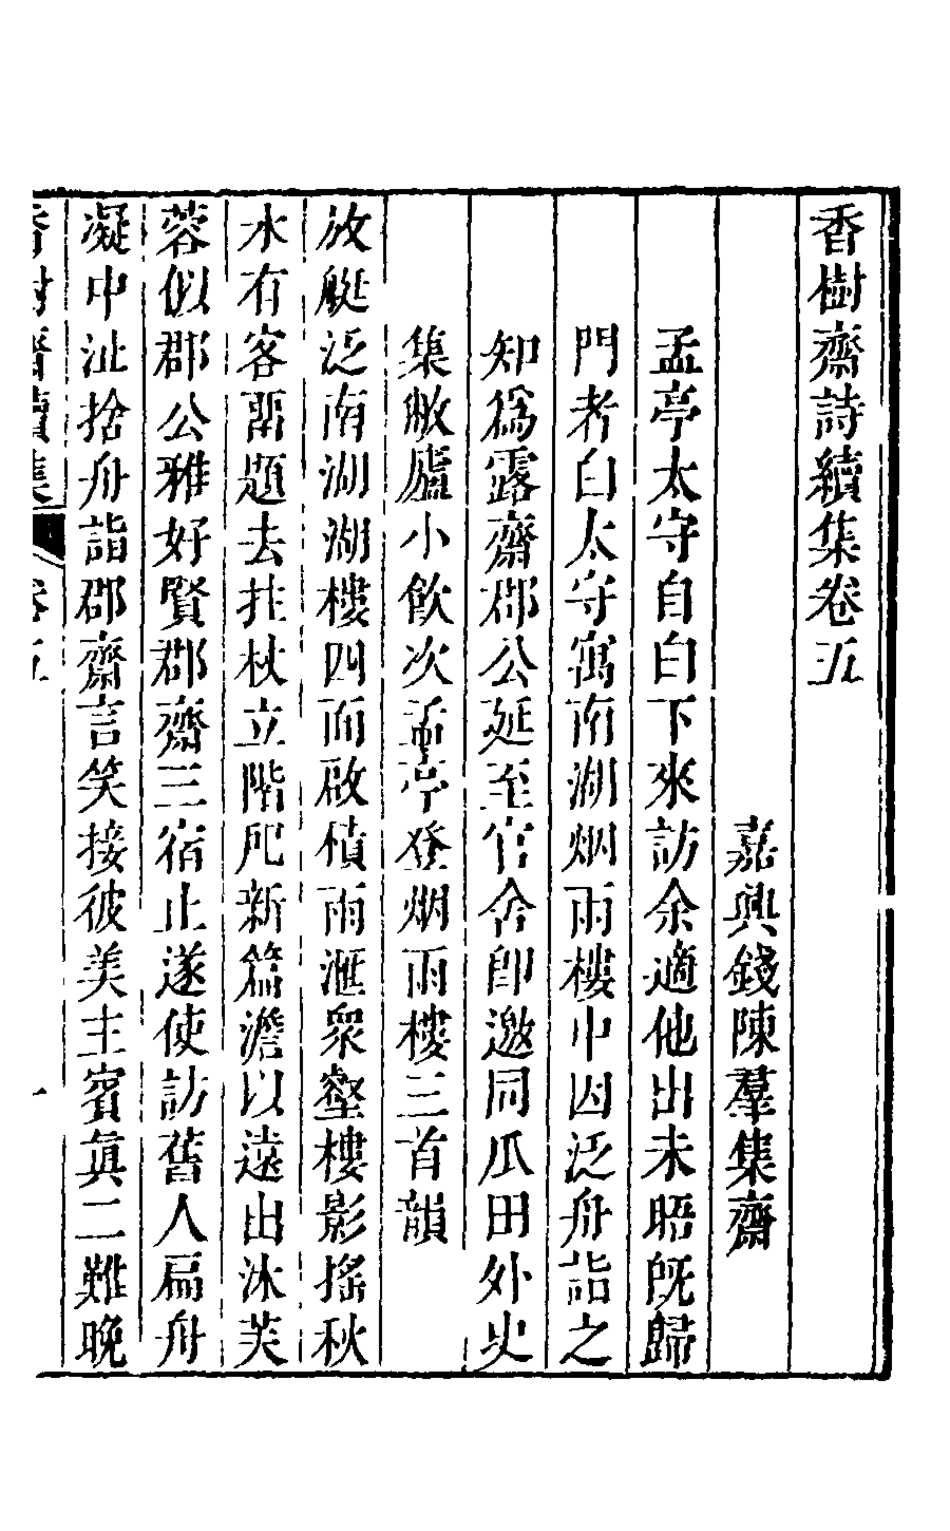 香樹齋詩續集卷五
嘉興錢陳羣集齋
孟亭太守自白下來訪余適他出未晤旣歸
門者白太守寓南湖烟雨樓中因泛舟詣之
知爲露齋郡公延至官舍卽邀同瓜田外史
集敝廬小飲次孟亭登烟雨樓三首韻
放艇泛南湖湖樓四面啟積雨滙衆壑樓影搖秋
水有客畱題去拄杖立階戺新篇澹以遠出沐芙
蓉似郡公雅好賢郡齋三宿止遂使訪舊人扁舟
凝中沚捨舟詣郡齋言笑接彼美主賓眞二難晚
香樹齋續集 卷五 一